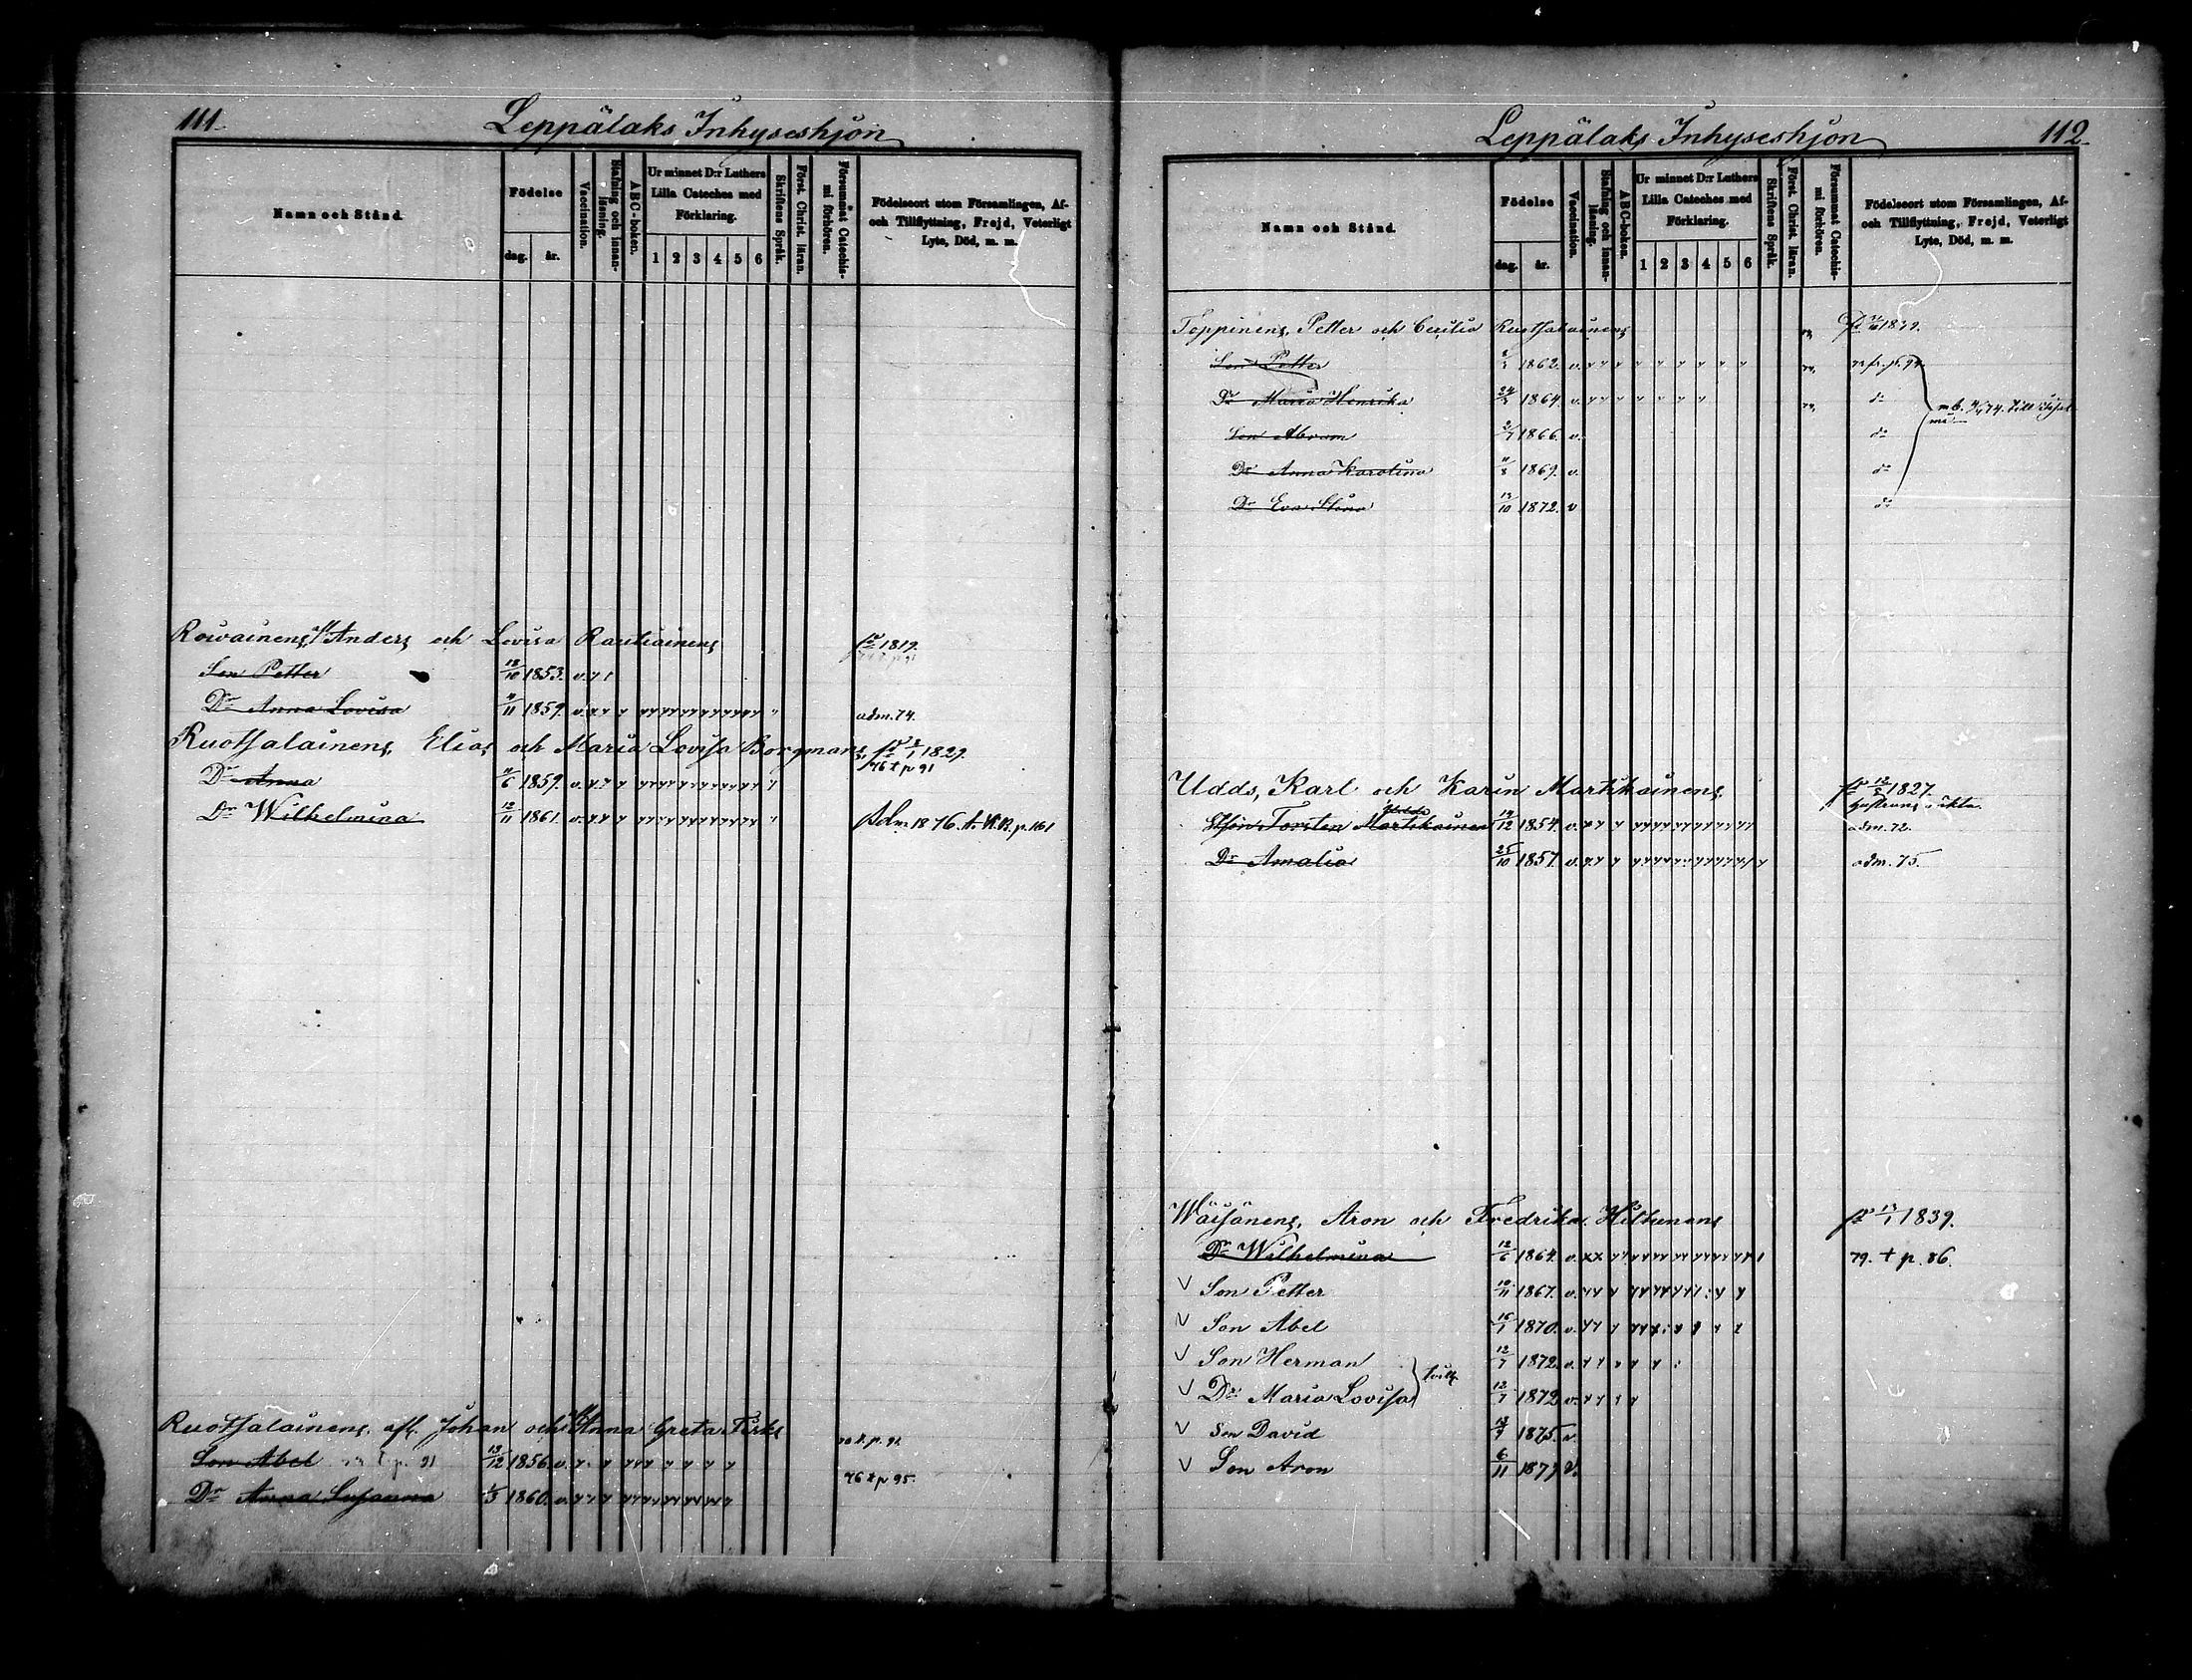 111.
Leppälaks Inhyseshjon
Namn och Stånd.
Födelse
dag. år.
Vaccination.
Stafning och innanläsning.
ABC-boken.
Ur minnet D:r Luthers Lilla Cateches med Förklaring.
1 2 3 4 5 6
Skriftens Språk.
Först. Christ. läran.
Försummat Catechismi förhören.
Födelseort utom Församlingen, Af- och Tillflyttning, Frejd, Veterligt Lyte, Död, m. m.
Anders och Lovisa 1819.
Son Petter 18/10 1853. v.
Dr Anna Lovisa 4/11 1859. v. adm. 74.
Ruotsalainens, Elias och Maria Lovisa Borgmans 1829.
76 t p 91
Dr Anna 4/6 1859. v.
Dr Wilhelmina 12/11 1861. v. Adm 1876. p. 161
Ruotsalainens, afl. Johan och Anna Greta Tirks
Son Abel p. 91 13/12 1856. v.
76 t p 95.
Dr Anna Susanna 1/3 1860. v.
Leppälaks Inhyseshjon
112.
Namn och Stånd.
Födelse
dag. år.
Vaccination.
Stafning och innanläsning.
ABC-boken.
Ur minnet D:r Luthers Lilla Cateches med Förklaring.
1 2 3 4 5 6
Skriftens Språk.
Först. Christ. läran.
Försummat Catechismi förhören.
Födelseort utom Församlingen, Af- och Tillflyttning, Frejd, Veterligt Lyte, Död, m. m.
Toppinens, Petter och Cecilia Ruotsalainens 1839.
Son Petter 1862. v.
Dr Maria Henrika 24/2 1864. v. do
Son Abram 1866. v. do
Dr Anna Karolina 1869. v. do
Dr Eva Stina 13/10 1872. v do
Udds, Karl och Karin Martikainens 12/8 1827.
Torsten Martikainen 14/12 1854. v. adm. 72.
Dr Amalia 25/10 1857. v. adm. 75.
Wäisänens, Aron och Fredrika Hiltunens 13/1 1839.
Dr Wilhelmina 12/6 1864. v. 79. t p. 86.
V Son Petter 10/11 1867. v.
V Son Abel 16/1 1870. v.
V Son Herman 12/7 1872. v.
V Dr Maria Lovisa 12/7 1872 v.
V Son David 1875. v.
V Son Aron 6/11 1877 v.